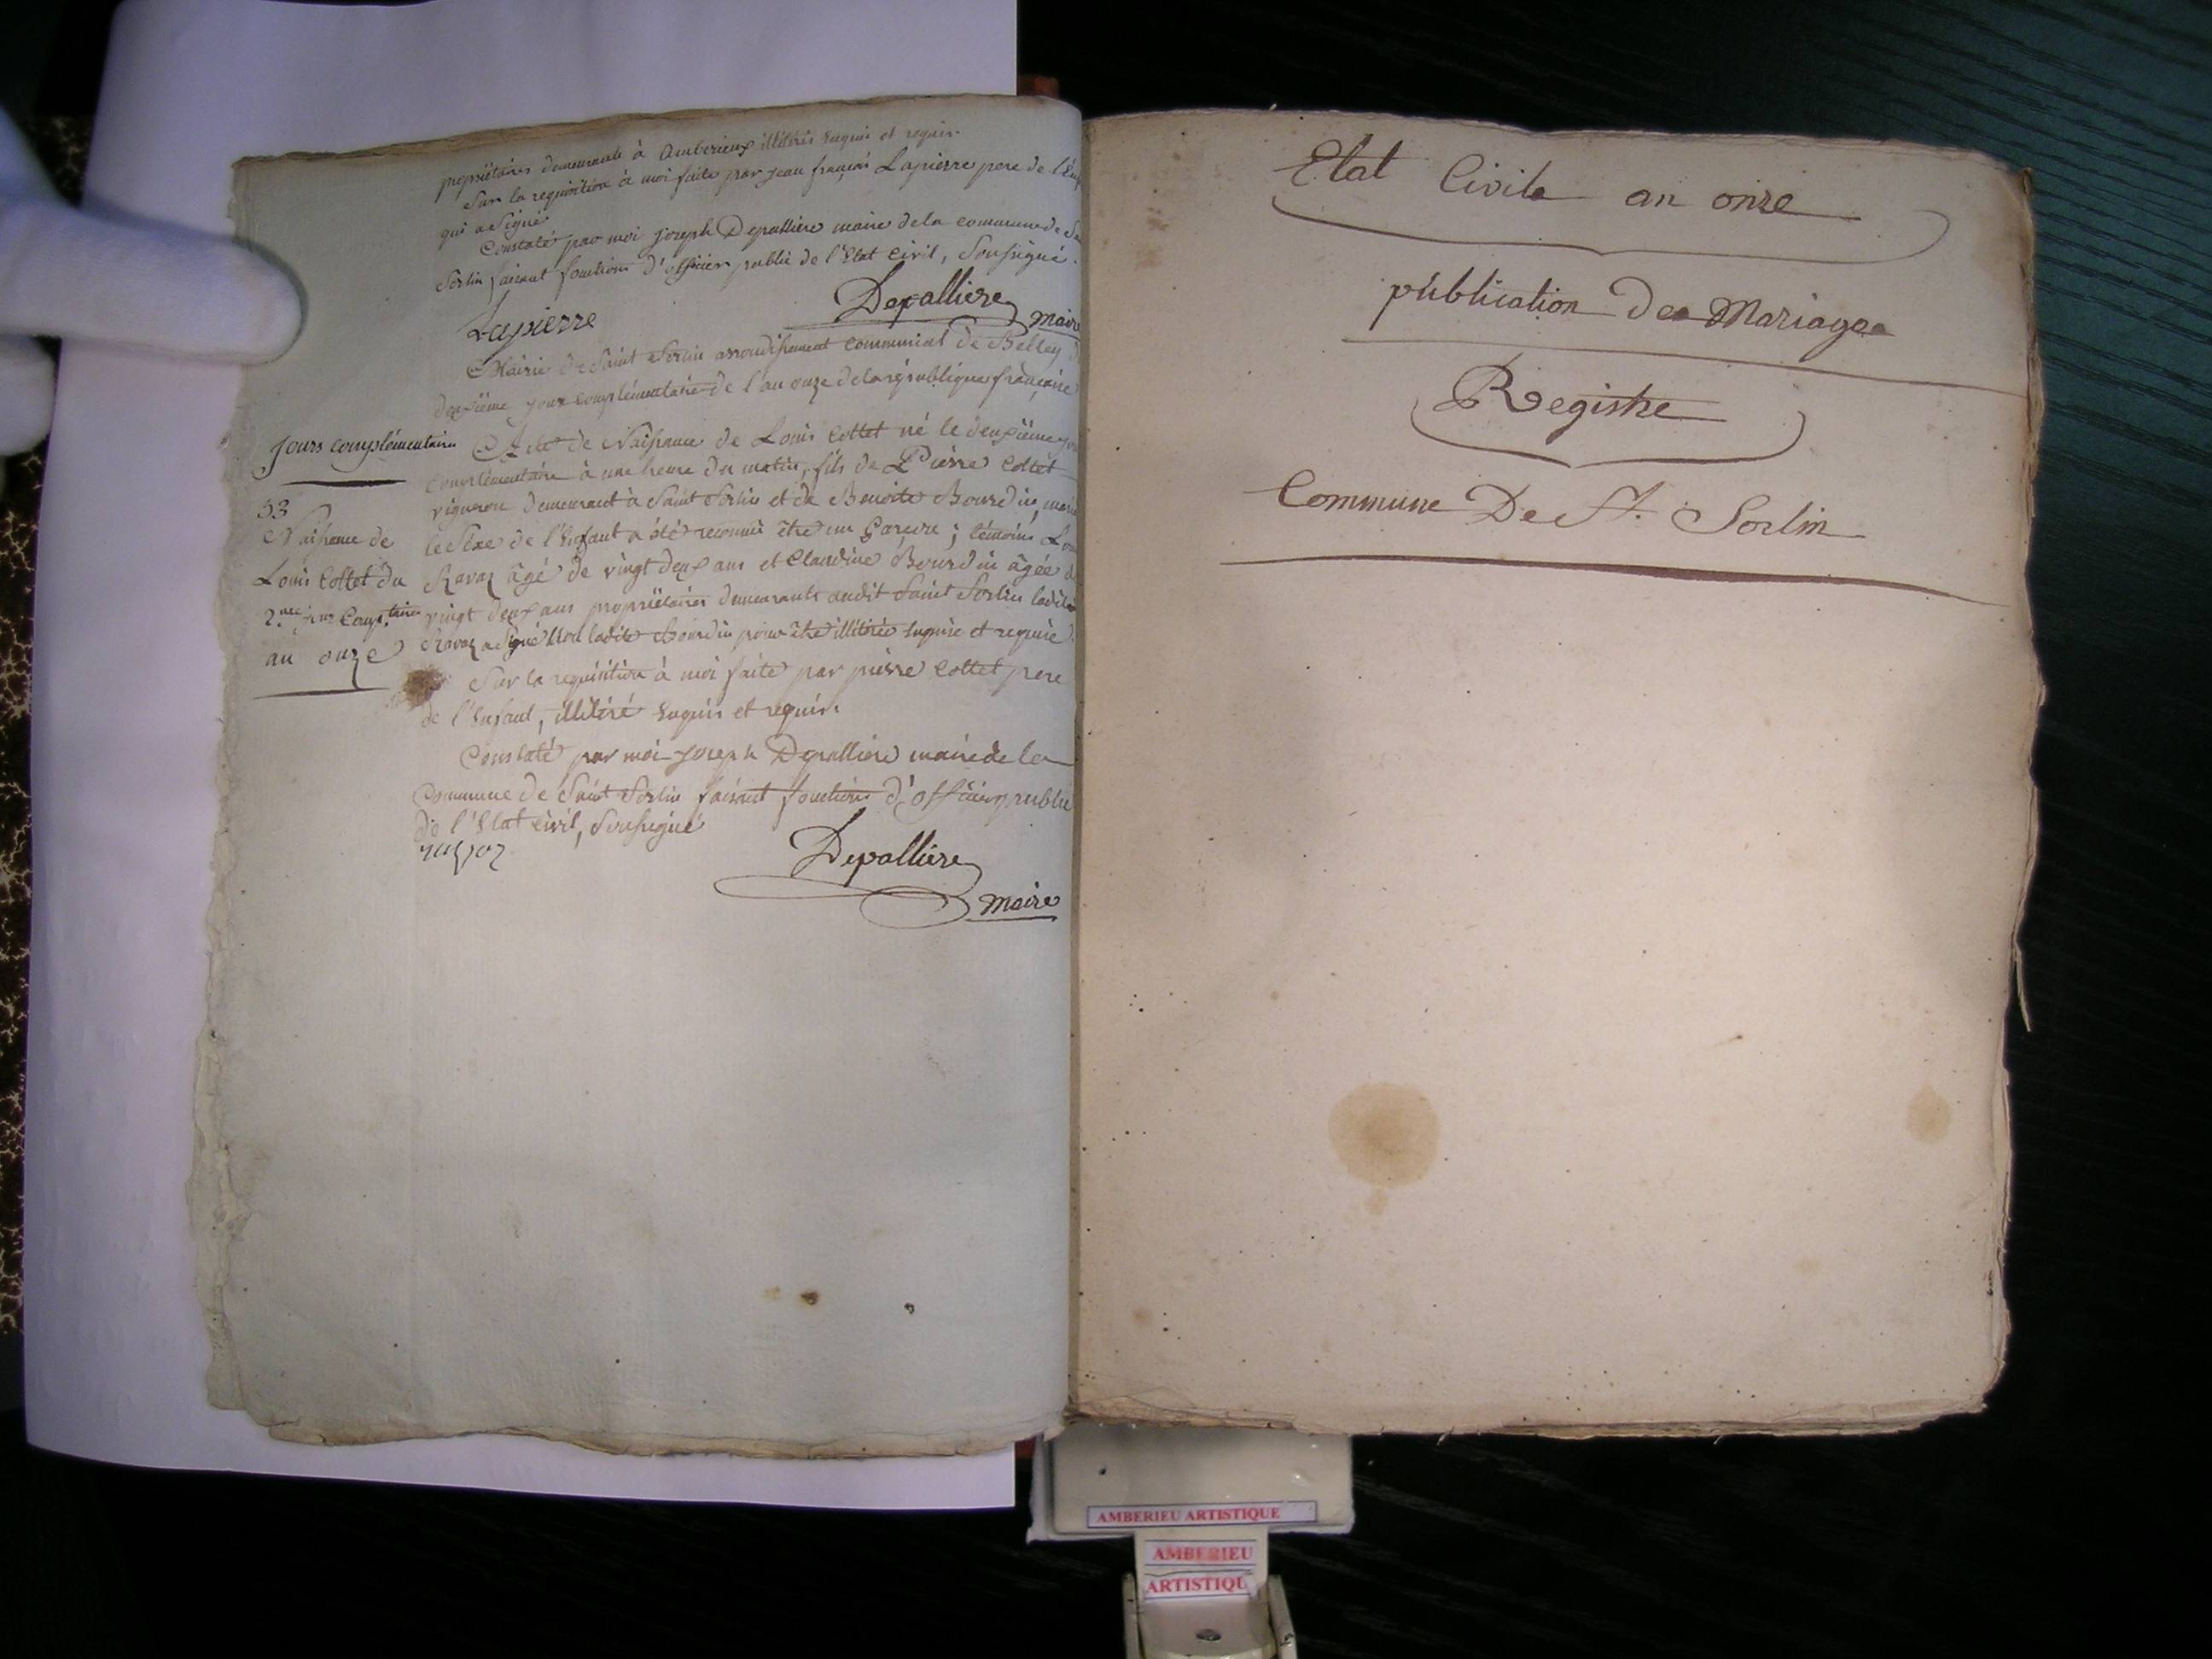 propriétaires demeurants à Ambérieux illitérés enquis et requis.
Sur la requisition à moi faite par jean françois Lapierre pere de l'Enf
qui a Signé
Constaté par moi joseph Depalliere maire de la commune de S
Sorlin faisant fonctions d'officier public de l'Etat Civil, Soussigné.
Lapierre
Depalliere maire
Mairie de Saint Sorlin arrondissement communal de Belley
deuxième jour complémentaire de l'an onze de la république française
jours complémentaires
53
Naissance de
Louis Cottet du
2me jour Comp.taire
an onze
Acte de Naissance de Louis Cottet né le deuxième
complémentaire à une heure du matin, fils de Pierre Cottet
vigneron demeurant à Saint Sorlin et de Benoite Bourdin,
le Sexe de l'Enfant a été reconnu être un Garçon ; témoins
Ravaz âgé de vingt deux ans et Claudine Bourdin âgée de
vingt deux ans propriétaires demeurants audit Saint Sorlin ledit
Ravaz a Signé Non ladite Bourdin pour être illitérée enquise et requise.
Sur la requisition à moi faite par pierre Cottet pere
de l'Enfant, illitéré enquis et requis.
Constaté par moi joseph Depalliere maire de la
Commune de Saint Sorlin faisant fonctions d'officier public
de l'Etat Civil, Soussigné
Depalliere
maire
Etat Civile an onze
publication des Mariages
Registre
Commune De St. Sorlin
AMBERIEU ARTISTIQUE
AMBERIEU
ARTISTIQU